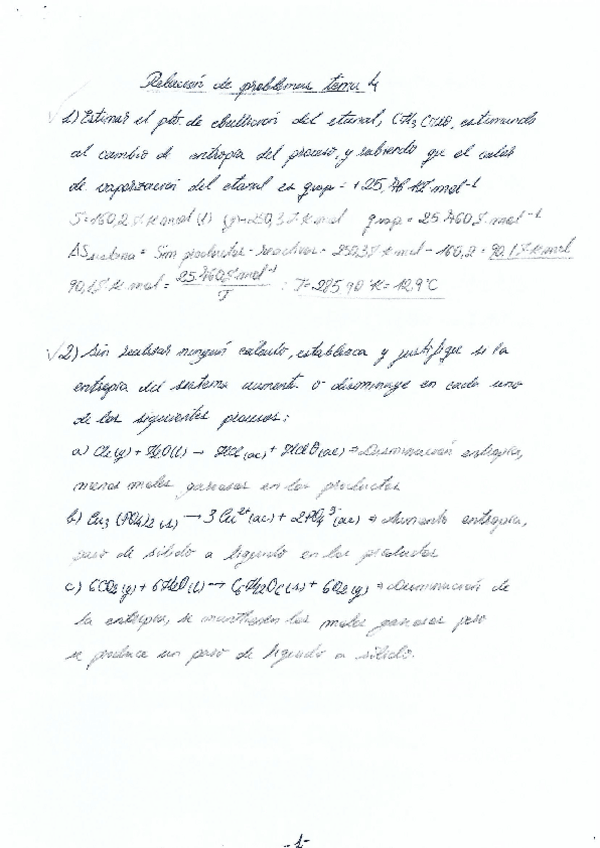 Relación de problemas tema 4
1) Estimar el pto de ebullición del etanal, CH3CHO, estimando
el cambio de entropía del proceso, y sabiendo que el calor
de vaporización del etanal es qvap = +25,76 KJ·mol-1
S=160,2 J·K·mol (l) (g)=250,3 J·K·mol qvap = 25.760 J·mol-1
ΔSsistema = Sm productos - reactivos = 250,3 J·K·mol - 160,2 = 90,1 J·K·mol
90,1 J·K·mol = 25.760 J·mol-1 / T : T=285,90 °K = 12,9°C
2) Sin realizar ningún cálculo, establezca y justifique si la
entropía del sistema aumenta o disminuye en cada uno
de los siguientes procesos:
a) Cl2(g) + H2O(l) → HCl(ac) + HClO(ac) ⇒ Disminución entropía,
menos moles gaseosos en los productos
b) Cu3(PO4)2(s) → 3Cu2+(ac) + 2PO43-(ac) ⇒ Aumento entropía,
paso de sólido a líquido en los productos
c) 6CO2(g) + 6H2O(l) → C6H12O6(s) + 6O2(g) ⇒ Disminución de
la entropía, se mantienen los moles gaseosos pero
se produce un paso de líquido a sólido.
-1-